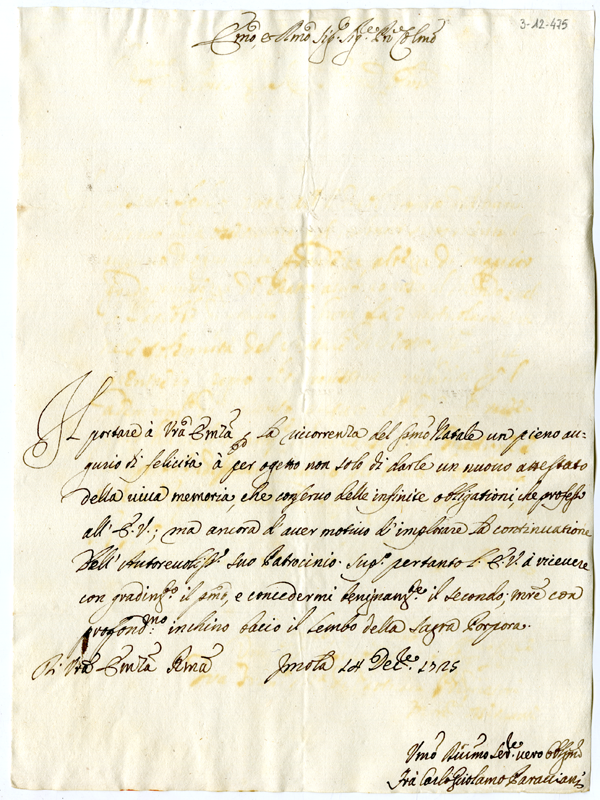 3-12-475
Emo, e Rmo Sig.r Sig.re Pne Colmo
Il portare à Vrã Emza p la ricorrenza del smo Natale un pieno au-
gurio di felicità à per ogetto non solo di darle un nuovo attestato
della viva memoria, che conservo delle infinite obbligationi, che professo
all' E. V.; ma ancora d'aver motivo d'implorare la continuatione
dell' Autorevoliss.o suo Patrocinio. Sup.o pertanto l' E. V. à ricevere
con gradim.to il pmo, e concedermi benignam.te il secondo; mre con
profond.mo inchino bacio il lembo della Sagra Porpora.
Di Vrã Emza Rmã Imola 14 Dec.re 1725
Vmo Devmo Ser.re vero
Frà Carlo Girolamo